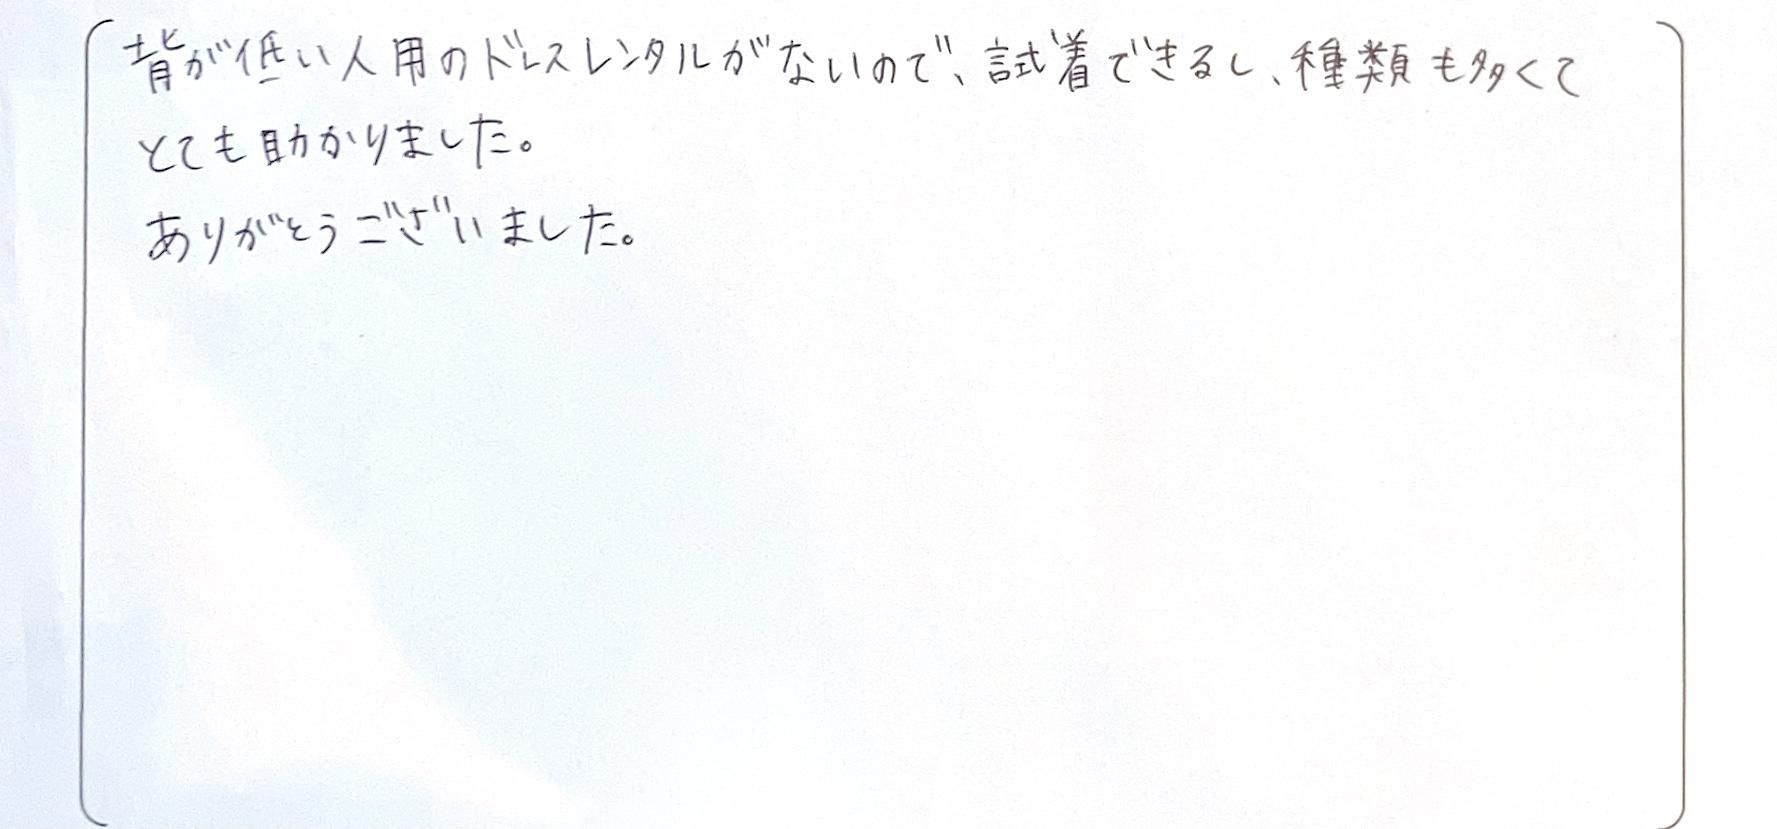 背が低い人用のドレスレンタルがないので、試着できるし、種類も多くて
とても助かりました。
ありがとうございました。